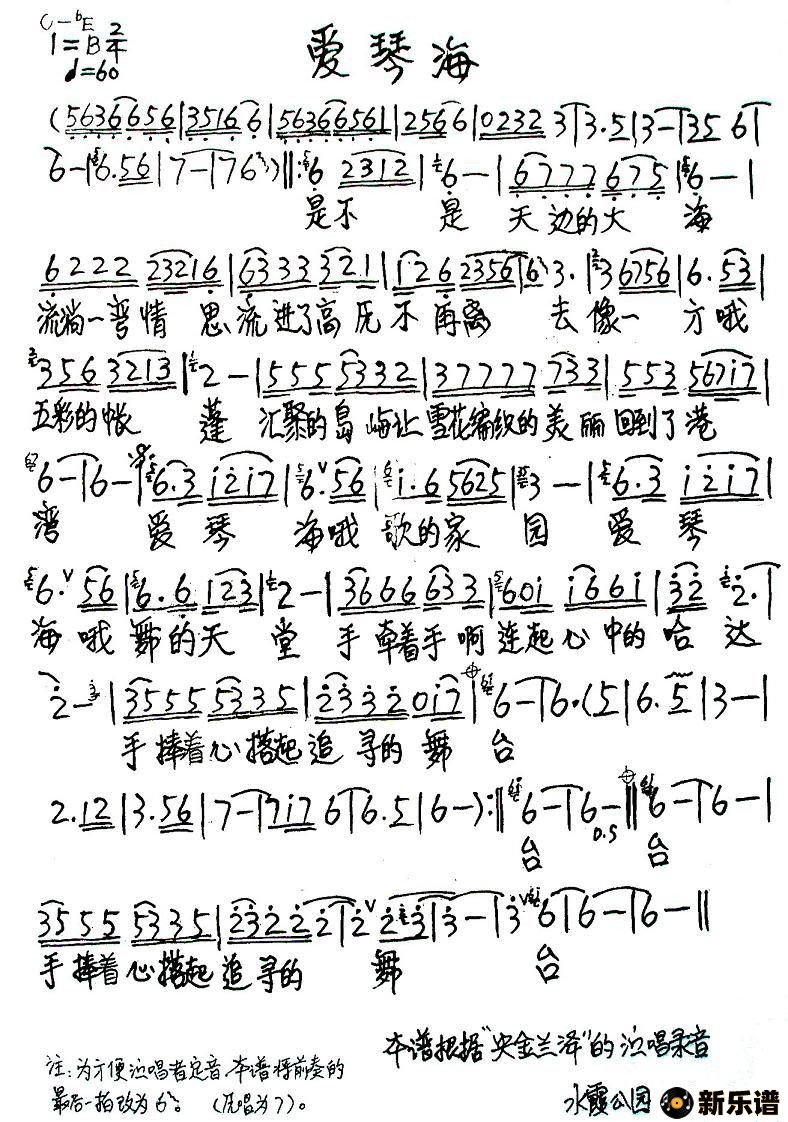 C-bE
1=B 2/4
♩=60
爱琴海
(5636 656|3516 6|5636 6561|2566|0232 3|3.5|3-|35 6|
6-|6.56|7-|76)‖:6 2312|6-|6777 675|6-|
是不 是 天边的大 海
6222 23216|6333 321|i26 2356|6 3.|3 6756|6.53|
流淌一弯情 思流进了高 厄不再离 去像一 方哦
356 3213|2-|555 5332|37777 733|553 567i7|
五彩的帐 蓬 汇聚的岛屿让雪花编织的美丽回到了港
6-|6-|6.3 i2i7|6.56|i.6 5625|3-|6.3 i2i7|
湾 爱琴 海哦歌的家 园 爱琴
6.56|6.6 123|2-|3666 633|60i i66i|32 2.|
海哦舞的天 堂 手牵着手啊连起心中的哈达
2-|3555 5335|2332 0i7|6-|6.(5|6.5|3-|
手捧着心搭起追寻的 舞 台
2.12|3.56|7-|7i7 6|6.5|6-):‖6-|6-‖6-|6-|
D.S
台 台
3555 5335|2322 2|2 23|3-|3 6|6-|6-‖
手捧着心搭起追寻的 舞 台
本谱根据“央金兰泽”的演唱录音
注:为方便演唱者定音,本谱将前奏的
最后一拍改为6。 (原唱为7)。
水霞公园 新乐谱